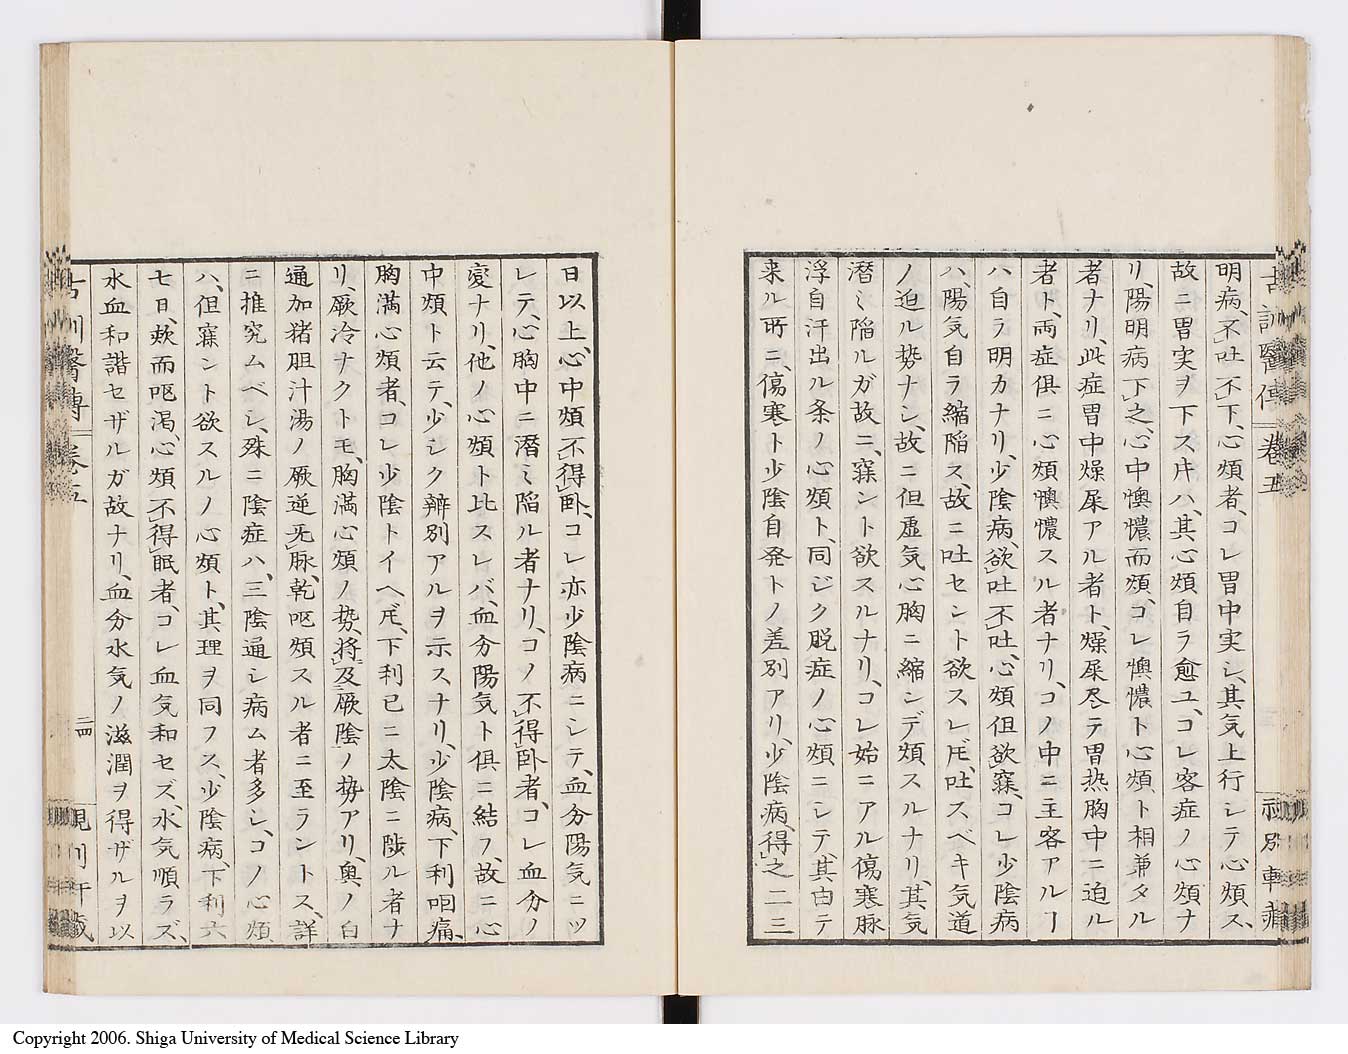 明病、不吐不下、心煩者、コレ胃中実シ、其気上行シテ心煩ス、
故ニ胃実ヲ下ス片ハ、其心煩自ラ愈ユ、コレ客症ノ心煩ナ
リ、陽明病下之、心中懊憹而煩、コレ懊憹ト心煩ト相兼タル
者ナリ、此症胃中燥屎アル者ト、燥屎尽テ胃熱胸中ニ迫ル
者ト、両症倶ニ心煩懊憹スル者ナリ、コノ中ニ主客アルヿ
ハ自ラ明カナリ、少陰病、欲吐不吐、心煩但欲寐、コレ少陰病
ハ、陽気自ラ縮陥ス、故ニ吐セント欲スレ𪜈、吐スベキ気道
ノ迫ル势ナシ、故ニ但虚気心胸ニ縮ンデ煩スルナリ、其気
潜〻陥ルガ故ニ、寐ント欲スルナリ、コレ始ニアル傷寒脉
浮自汗出ル条ノ心煩ト、同ジク脱症ノ心煩ニシテ、其由テ
来ル所ニ、傷寒ト少陰自発トノ差別アリ、少陰病、得之二三
古訓醫傳 卷五
日以上、心中煩、不得臥、コレ亦少陰病ニシテ、血分陽気ニツ
レテ、心胸中ニ潜〻陥ル者ナリ、コノ不得臥者、コレ血分ノ
変ナリ、他ノ心煩ト比スレバ、血分陽気ト倶ニ結フ、故ニ心
中煩ト云テ、少シク辨別アルヲ示スナリ、少陰病、下利咽痛、
胸満心煩者、コレ少陰トイヘ𪜈、下利已ニ太陰ニ陟ル者ナ
リ、厥冷ナクトモ、胸満心煩ノ势、将及厥陰ノ势アリ、奥ノ白
通加猪胆汁湯ノ厥逆无脉、乾呕煩スル者ニ至ラントス、詳
ニ推究ムベシ、殊ニ陰症ハ、三陰通シ病ム者多シ、コノ心煩
ハ、但寐ント欲スルノ心煩ト、其理ヲ同フス、少陰病、下利六
七日、欬而呕渇、心煩不得眠者、コレ血気和セズ、水気順ラズ、
水血和諧セザルガ故ナリ、血分水気ノ滋潤ヲ得ザルヲ以
古訓醫傳 卷五
二十四
Copyright 2006. Shiga University of Medical Science Library